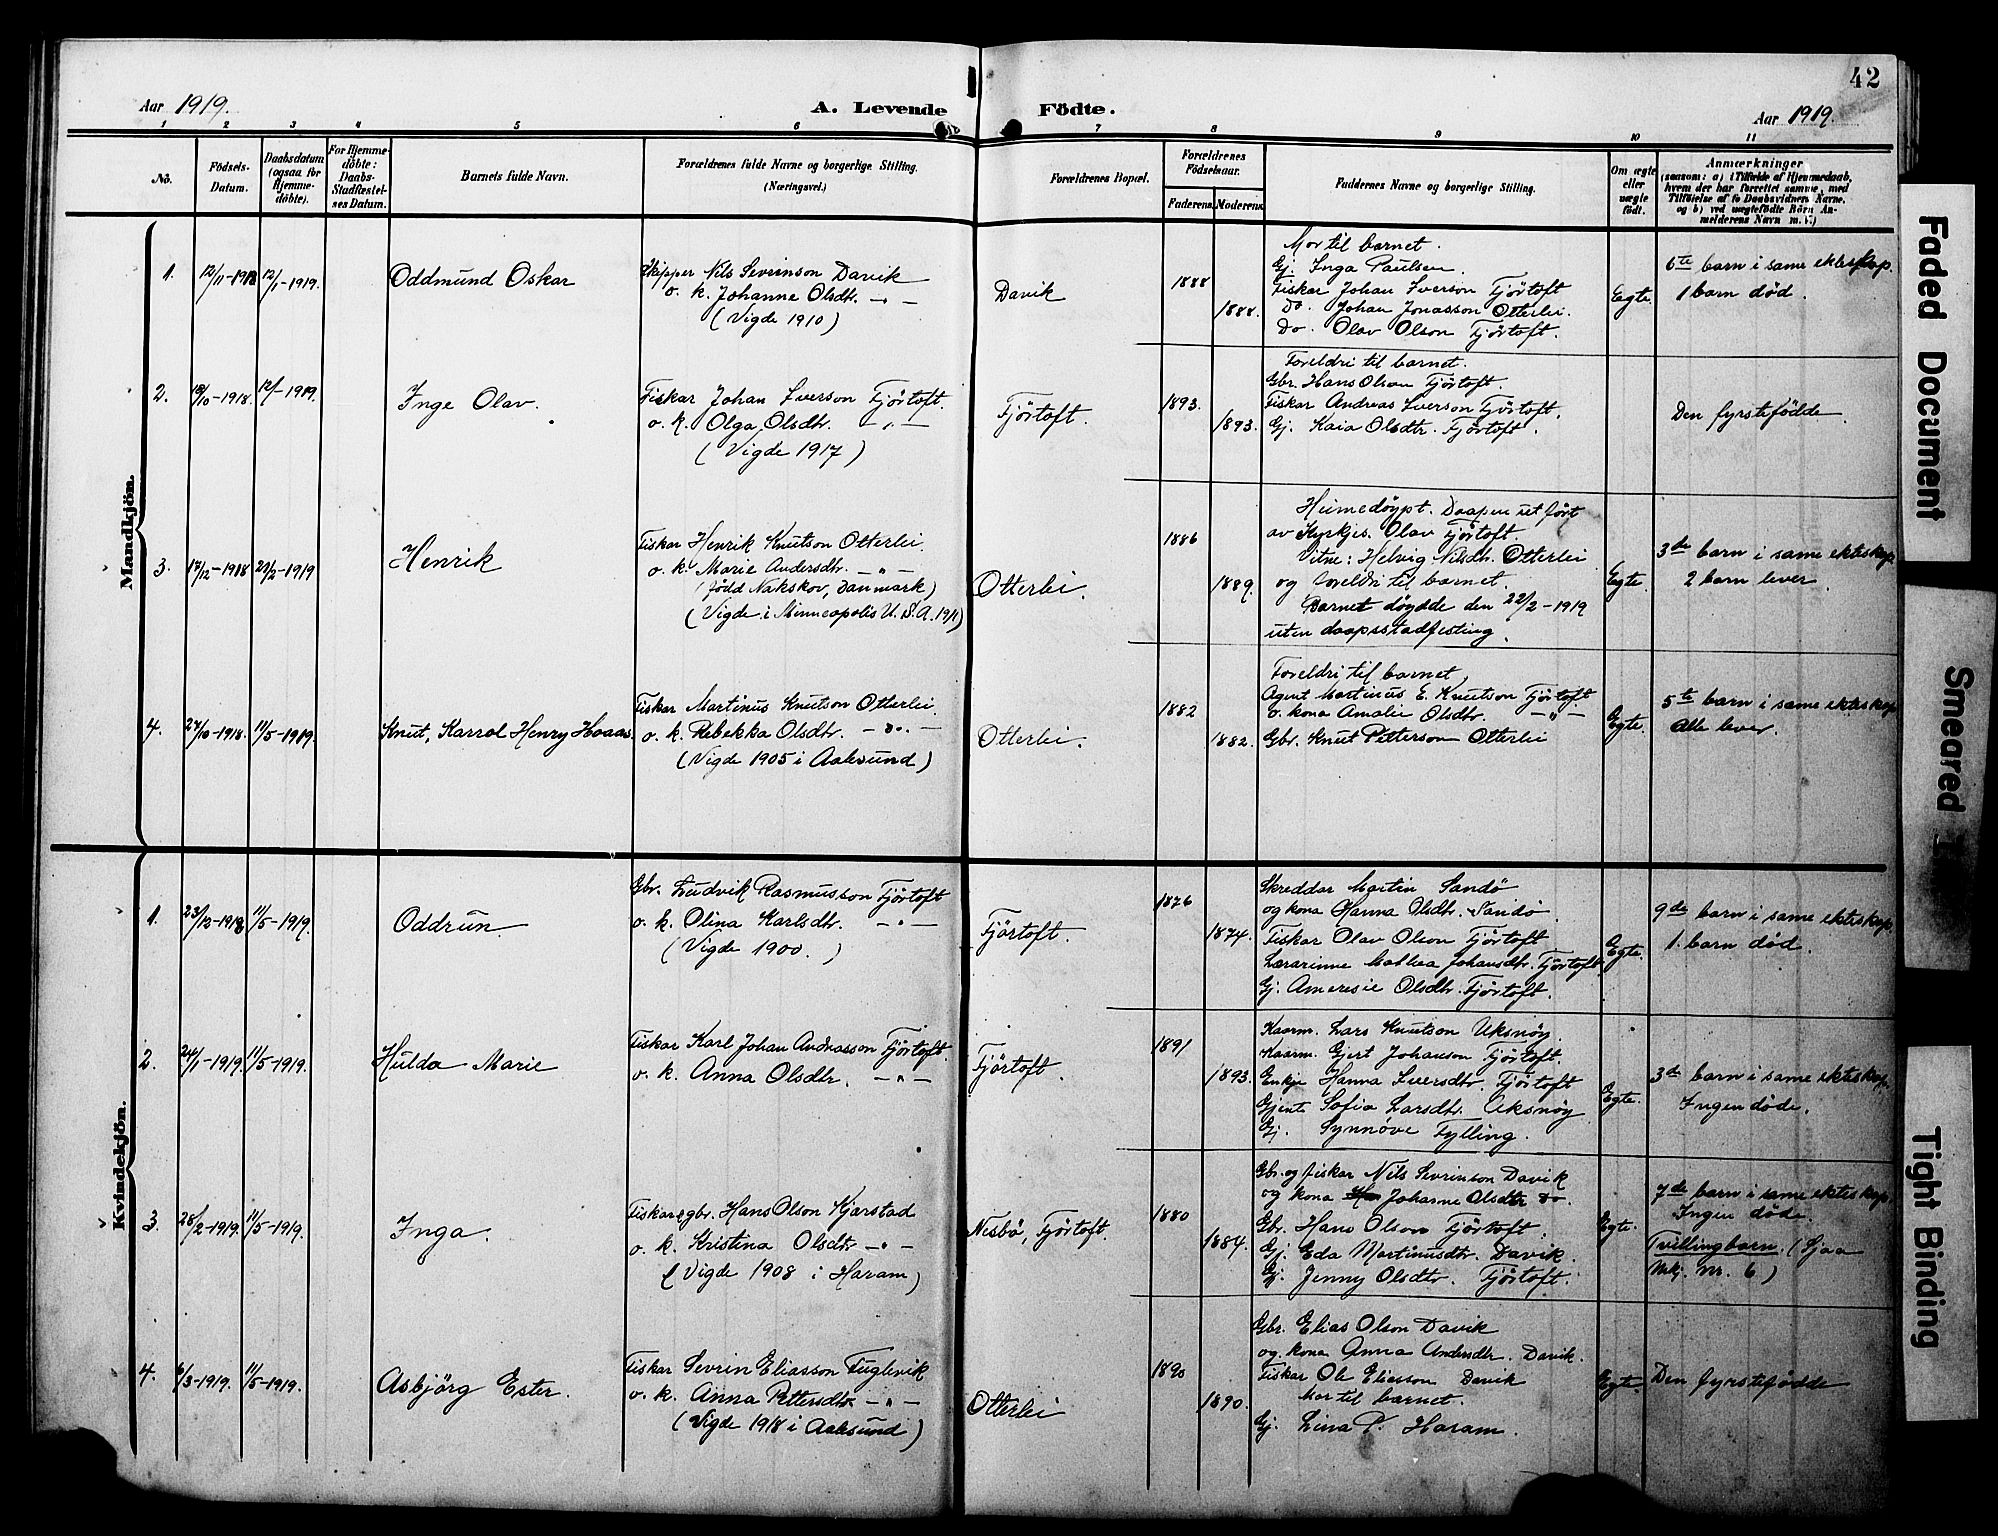 42
Aar 1919.
A. Levende Födte.
Aar 1919.
1 2 3 4 5 6 7 8 9 10 11
No.
Födsels-
Datum.
Daabsdatum
(ogsaa for
Hjemme-
döbte).
For Hjemme-
döbte:
Daabs-
Stadfæstel-
ses Datum.
Barnets fulde Navn.
Forældrenes fulde Navne og borgerlige Stilling.
(Næringsvei.)
Forældrenes Bopæl.
Forældrenes
Födselsaar.
Faderens. Moderens.
Faddernes Navne og borgerlige Stilling.
Om ægte
eller
uægte
födt.
Anmærkninger
(saasom: a) i Tilfælde af Hjemmedaab,
hvem der har forrettet samme, med
Tilföielse af to Daabsvidners Navne,
og b) ved uægtefödte Börn An-
melderens Navn m. v.)
Mandkjön.
1.
12/11-1918
12/1-1919.
Oddmund Oskar
Skipper Nils Sevrinson Davik
o. k. Johanne Olsdtr. -"-
(Vigde 1910)
Davik
1888
1888.
Mor til barnet.
Gj. Inga Paulsen.
Fiskar Johan Iverson Fjörtoft
Do. Johan Jonasson Otterlei.
Do. Olav Olson Fjörtoft.
Egte.
6te barn i same ekteskap.
1 barn död.
2.
18/10-1918.
12/1-1919.
Inge Olav.
Fiskar Johan Iverson Fjörtoft.
o. k. Olga Olsdtr. -"-
(Vigde 1917)
Fjörtoft.
1893.
1893.
Foreldri til barnet.
Gbr. Hans Olson Fjörtoft.
Fiskar Andreas Iverson Fjörtoft.
Gj. Kaia Olsdtr. Fjörtoft.
Den fyrstefödde.
3.
17/12-1918
21/2-1919
Henrik
Fiskar Henrik Knutson Otterlei.
o. k. Marie Andersdtr. -"-
(född Nakskov, Danmark)
(Vigde i Minneapolis U.S.A. 1911)
Otterlei.
1886
1889.
Heimedöypt. Daapen utfört
av Kyrkjes. Olav Fjörtoft.
Vitne: Helvig Nilsdtr. Otterlei
og foreldri til barnet
Barnet döydde den 22/2-1919
uten daapsstadfesting.
Egte
3de barn i same ekteskap
2 barn lever
4.
27/10-1918.
11/5-1919.
Knut, Karrol Henry Hoaas.
Fiskar Martinus Knutson Otterlei.
o. k. Rebekka Olsdtr. -"-
(Vigde 1905 i Aalesund)
Otterlei.
1882
1882.
Foreldri til barnet,
Agent Martinus E. Knutson Fjörtoft
o. kona Amalie Olsdtr. -"-
Gbr. Knut Petterson Otterlei
Egte.
5te barn i same ekteskap
Alle lever.
Kvindekjön.
1.
23/12-1918
11/5-1919.
Oddrun.
Gbr. Ludvik Rasmusson Fjörtoft
o. k. Olina Karlsdtr. -"-
(Vigde 1900.)
Fjörtoft.
1876
1874.
Skreddar Martin Sandö
og kona Hanna Olsdtr. Sandö.
Fiskar Olav Olson Fjörtoft
Lærarinne Mathea Johansdtr. Fjörtoft
Gj. Ameresie Olsdtr. Fjörtoft.
Egte.
9de barn i same ekteskap.
1. barn död.
2.
24/1-1919.
11/5-1919.
Hulda Marie
Fiskar Karl Johan Andreasson Fjörtoft
o. k. Anna Olsdtr. -"-
Fjörtoft.
1891
1893.
Kaarm. Lars Knutson Uksnöy.
Kaarm. Gjert Johanson Fjörtoft.
Enkje Hanna Iversdtr. Fjörtoft
Gjente Sofia Larsdtr. Uksnöy
Gj. Synnöve Fylling.
Egte.
3de barn i same ekteskap.
Ingen döde.
3.
28/2-1919.
11/5-1919.
Inga.
Fiskar og gbr. Hans Olson Kjærstad
o. k. Kristina Olsdtr -"-
(Vigde 1908 i Haram)
Nesbö, Fjörtoft.
1880
1884.
Gbr. og fiskar Nils Sevrinson Davik
og kona Johanne Olsdtr do.
Gbr. Hans Olson Fjörtoft.
Gj. Eda Martinusdtr. Davik.
Gj. Jenny Olsdtr. Fjörtoft.
Egte.
7de barn i same ekteskap.
Ingen döde.
Tvillingbarn. (Sjaa
Mkj. nr. 6)
4.
6/3-1919.
11/5-1919.
Asbjörg Ester.
Fiskar Sevrin Eliasson Fuglevik
o. k. Anna Pettersdtr. -"-
(Vigde 1918 i Aalesund)
Otterlei
1890
1890.
Gbr. Elias Olson Davik
og kona Anna Andersdtr. Davik.
Fiskar Ole Eliasson Davik
Mor til barnet.
Gj. Lina P. Haram.
Egte.
Den fyrstefödde
Faded Document
Smeared
Tight Binding